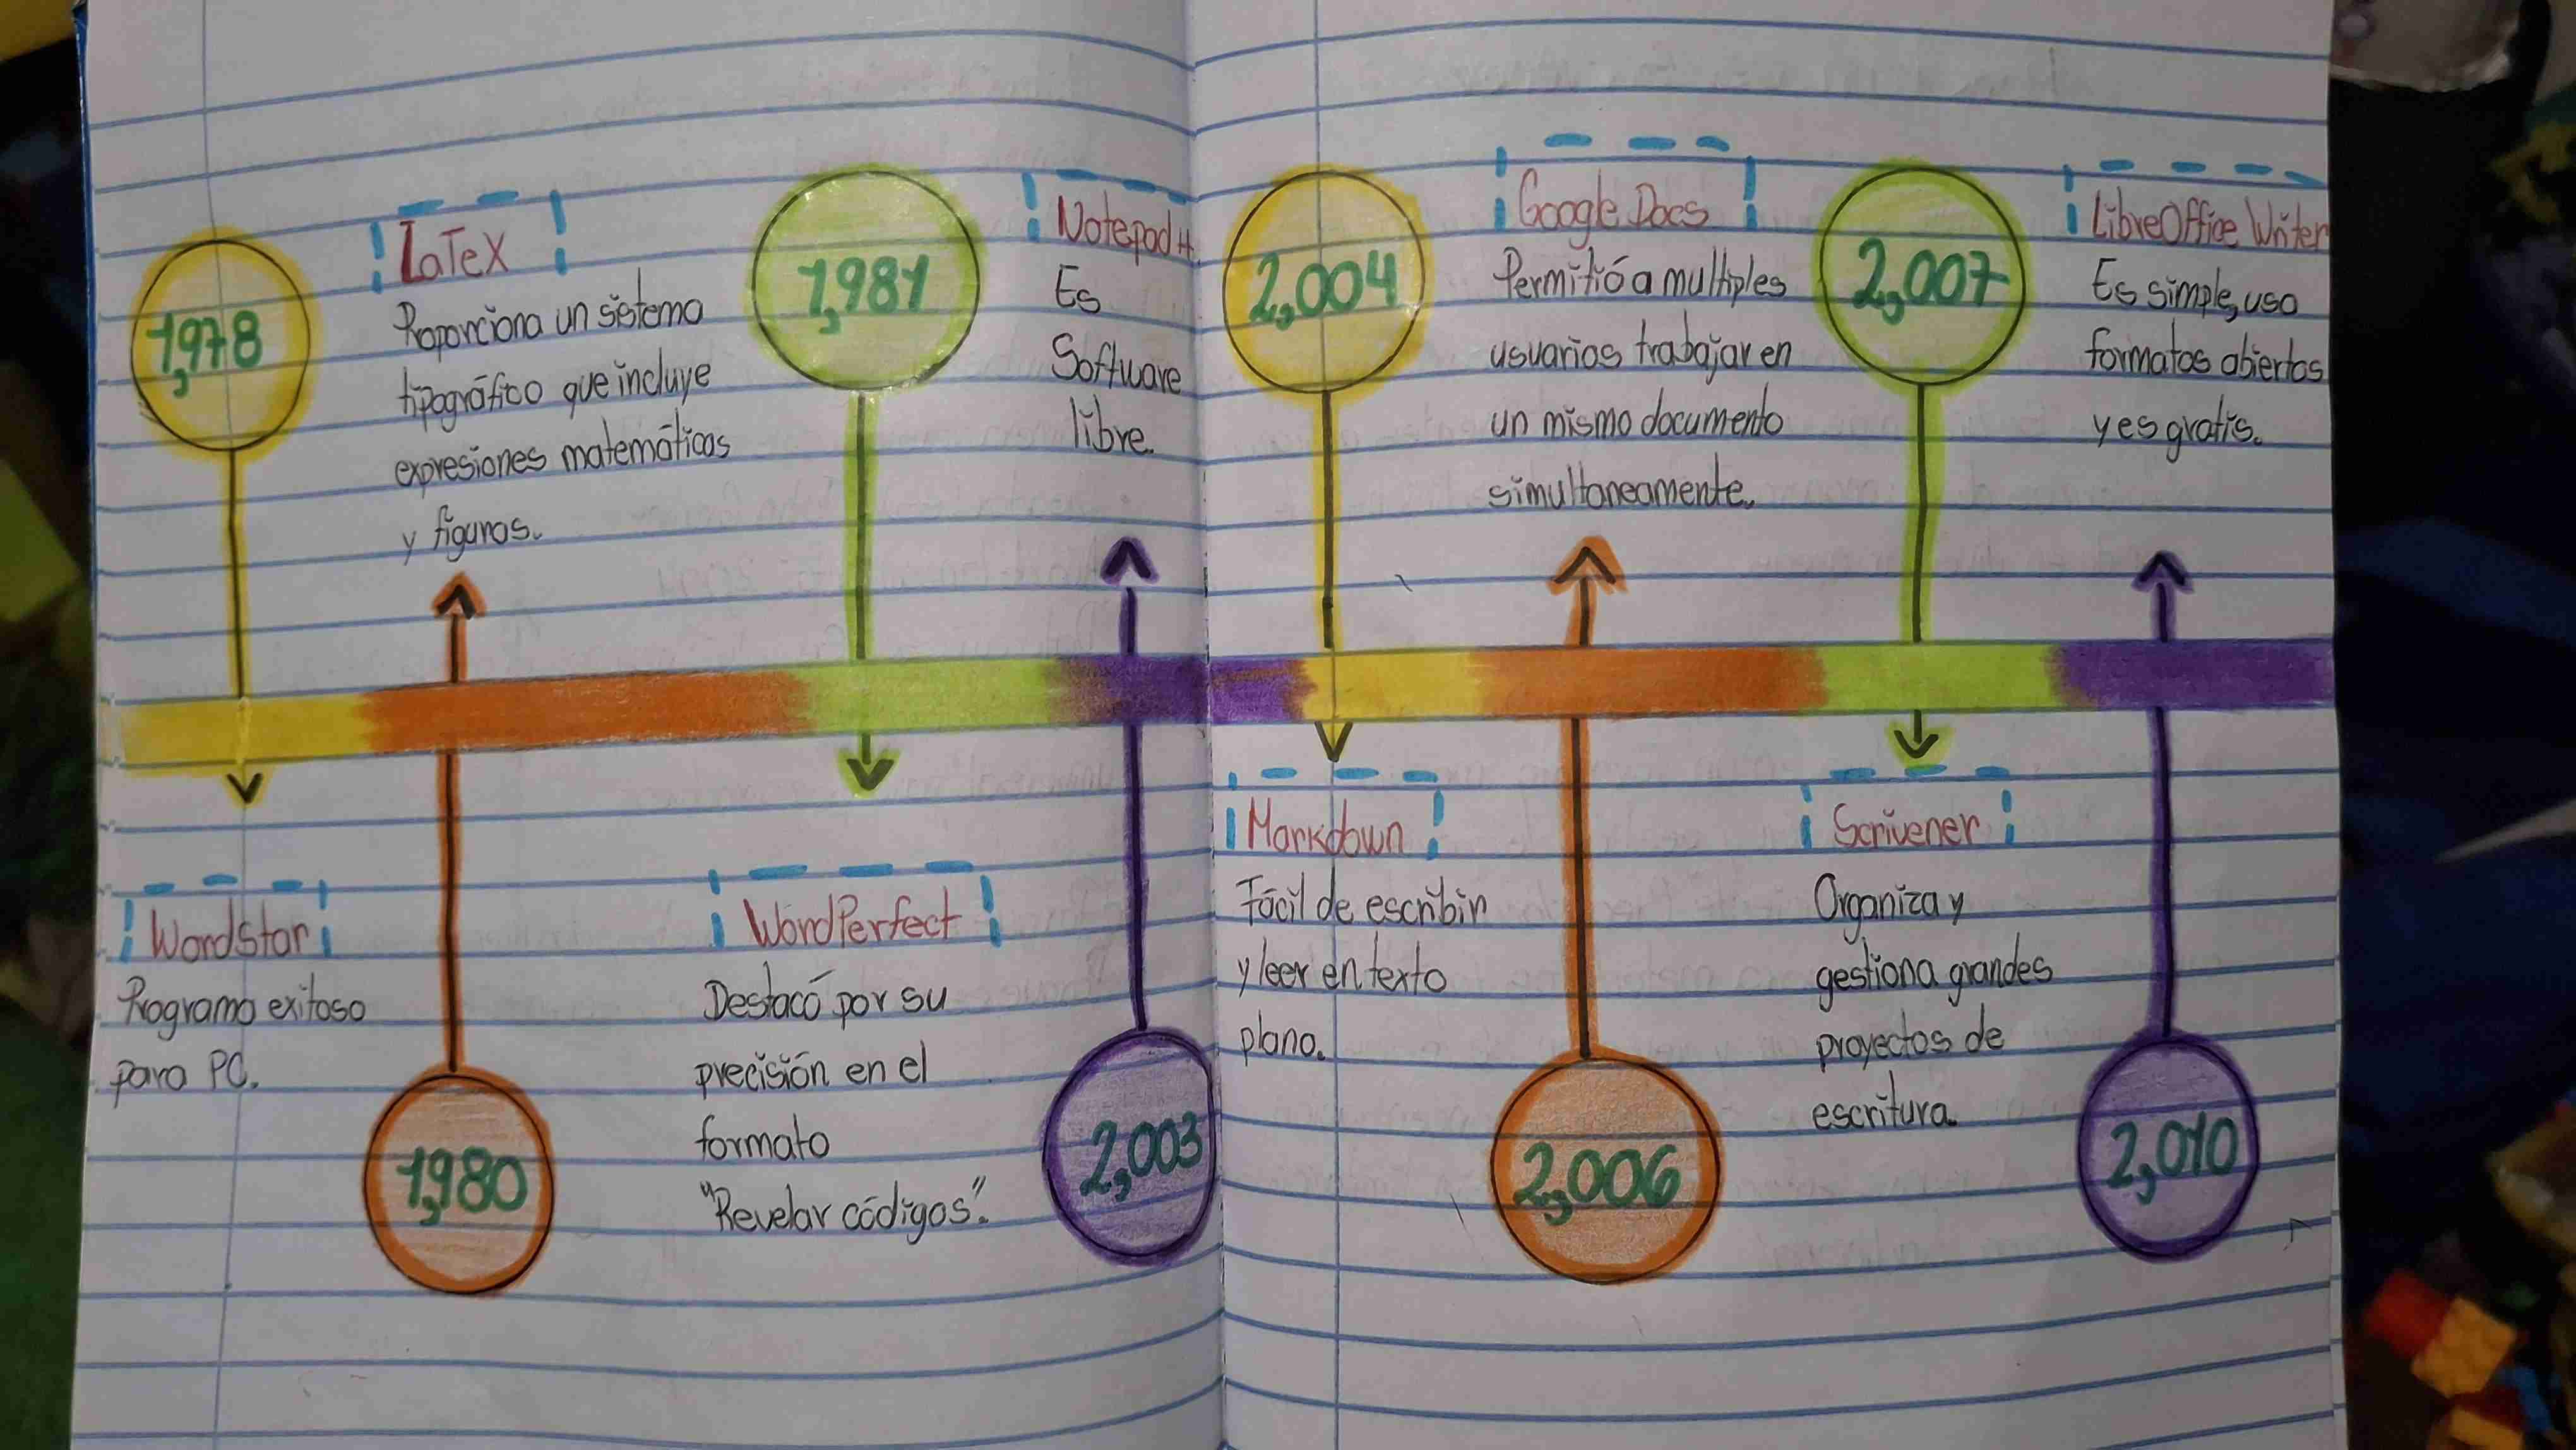 1,978
Wordstar
Programa exitoso
para PC.
LaTeX
Proporciona un sistema
tipográfico que incluye
expresiones matemáticas
y figuras.
1,980
1,981
WordPerfect
Destacó por su
precisión en el
formato
"Revelar códigos".
Notepad++
Es
Software
libre.
2,003
2,004
Markdown
Fácil de escribir
y leer en texto
plano.
Google Docs
Permitió a multiples
usuarios trabajar en
un mismo documento
simultaneamente.
2,006
2,007
Scrivener
Organiza y
gestiona grandes
proyectos de
escritura.
LibreOffice Writer
Es simple, usa
formatos abiertos
y es gratis.
2,010